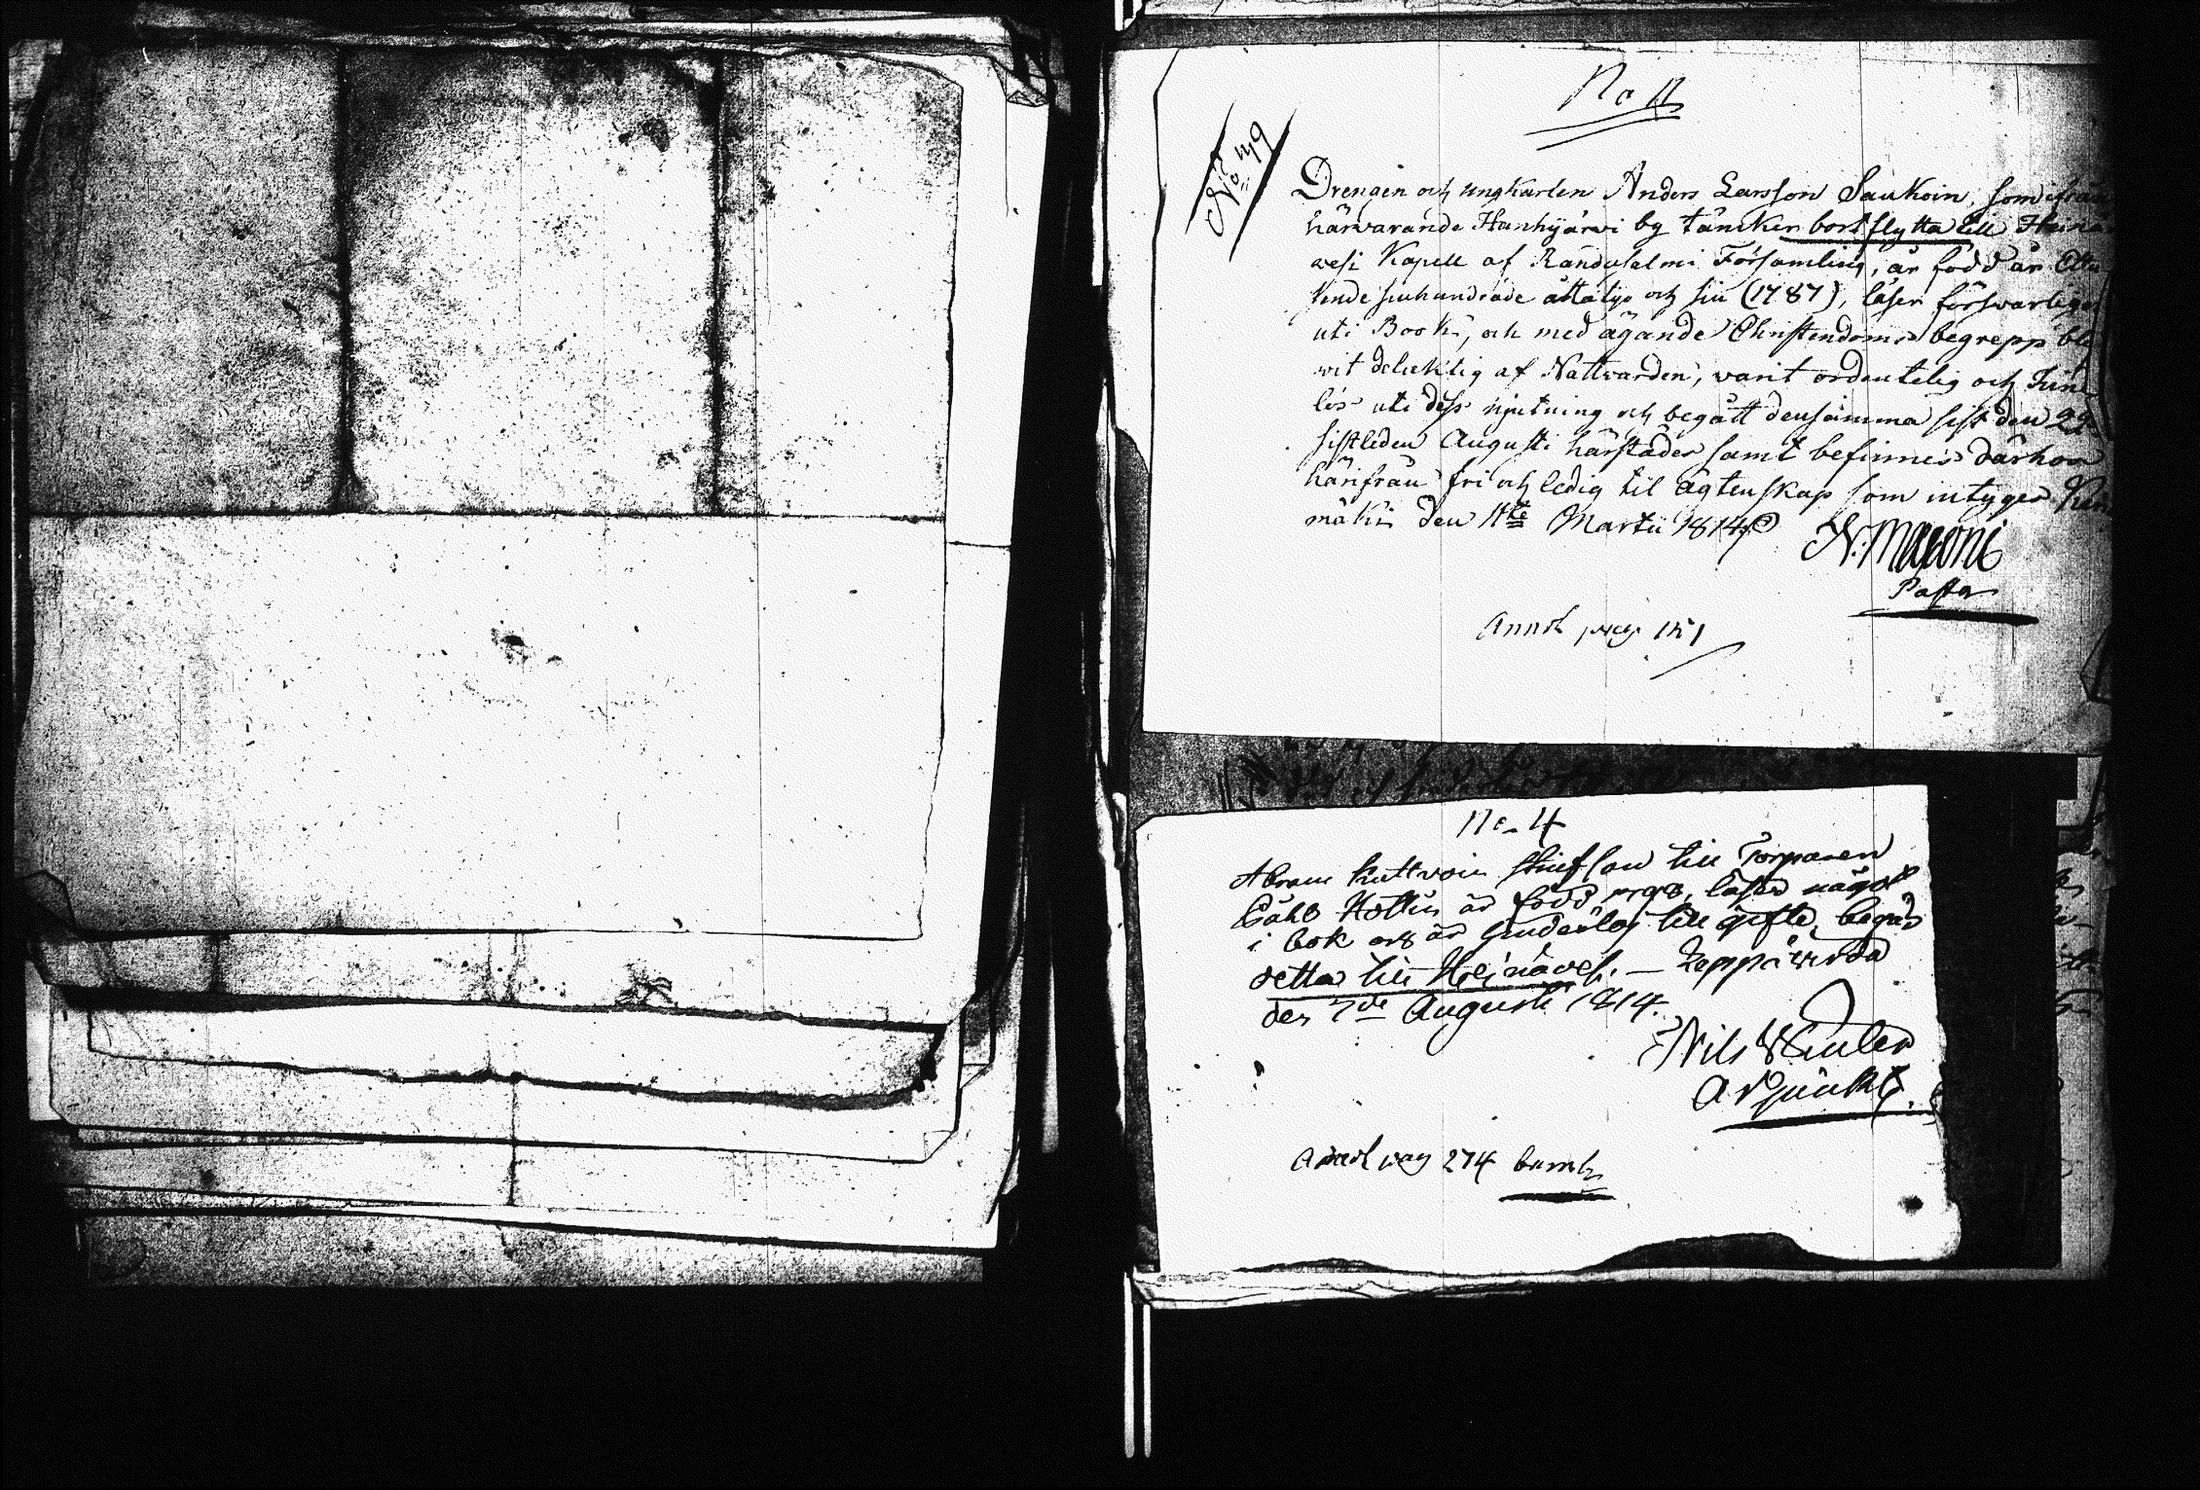 No 11
No 49
Drengen och ungkarlen Anders Larsson Saukoin, som ifrån
härvarande Hanhijärwi by täncker bortflytta till Heinä
wesi Kapell af Randasalmi Församling, är född år Ett
tusende siuhundrade åttatijo och siu (1787), läser försvarligen
uti Book, och med ägande Christendoms begrepp ble
wit delaktig af Nattvarden, varit ordentelig och
lös uti dess njutning och begått densamma sist den 29
sistleden Augusti härstädes samt befinnes därhos
härifrån fri och ledig til ägtenskap som intygas
mäki den 11te Martii 1814
N: Maconi
Pastor
Annot pag. 151
No 4
Abram Kuttvoin stiufson till Torparen
Påhl Hottin är född 1798, läser något
i bok och är hinderlös till gifte, begär
detta till Heinävesi. — Leppävirda
den 7de Augusti 1814.
Nils
Adjunkt.
Annot pag 274